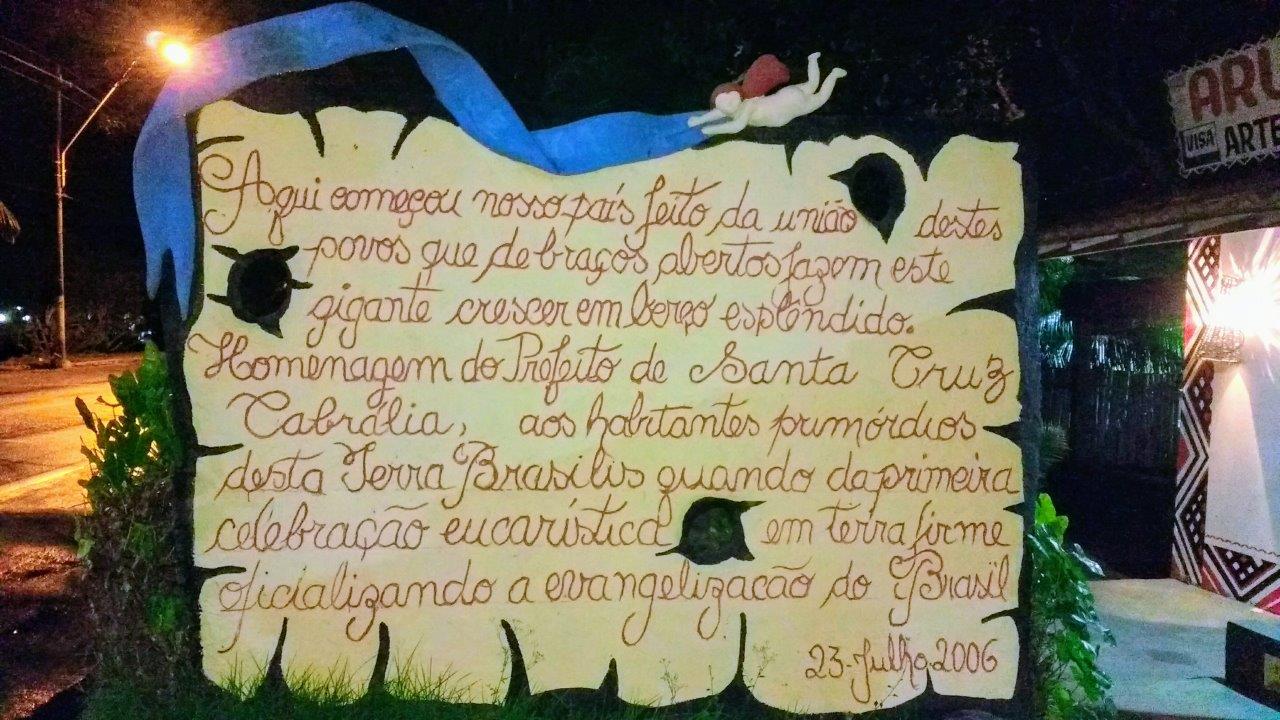 Aqui começou nosso país feito da união destes
povos que de braços abertos fazem este
gigante crescer em berço esplêndido.
Homenagem do Prefeito de Santa Cruz
Cabrália, aos habitantes primórdios
desta Terra Brasilis quando da primeira
celebração eucarística em terra firme
oficializando a evangelização do Brasil
23-Julho-2006
VISA